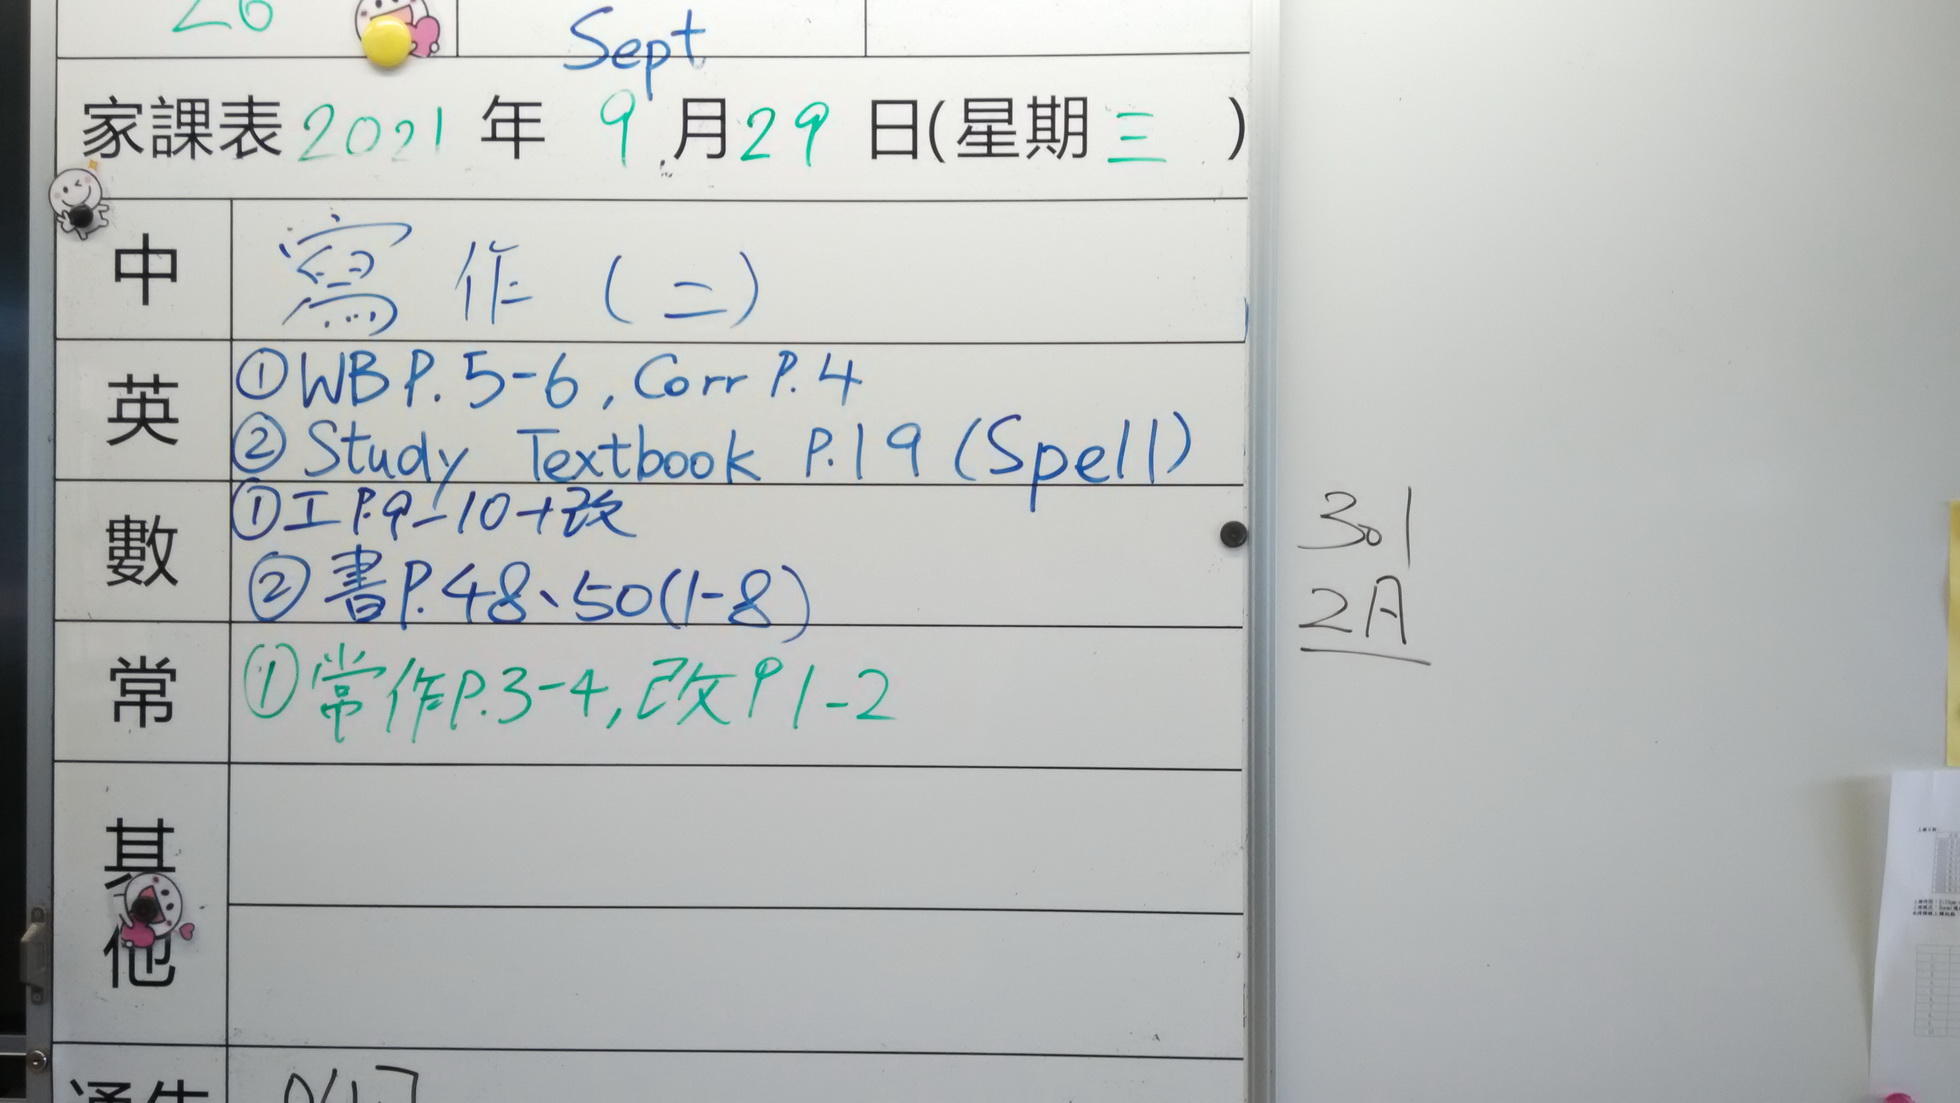 26
Sept
家課表 2021 年 9 月 29 日(星期三)
中 寫作(二)
英 ①WB P.5-6, Corr P.4
②Study Textbook P.19 (Spell)
數 ①工P.9-10+改
②書P.48、50(1-8)
常 ①常作P.3-4,改P1-2
其他
301
2A
通告